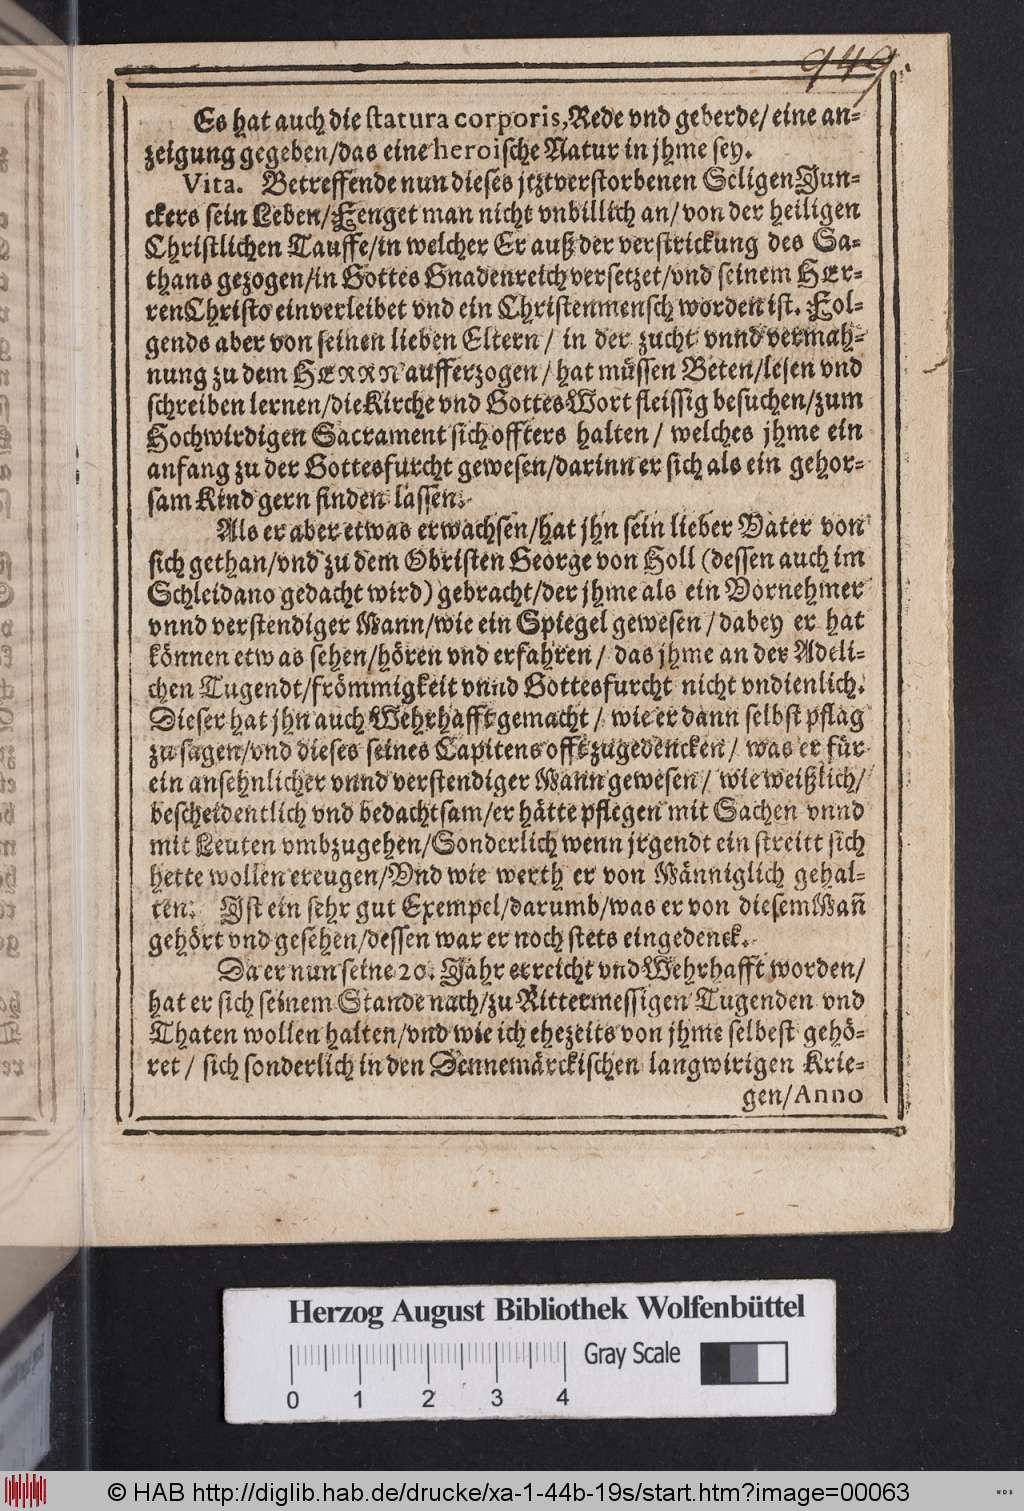 949
Es hat auch die statura corporis, Rede vnd geberde/ eine an-
zeigung gegeben/das eine heroische Natur in jhme sey.
Vita. Betreffende nun dieses jtztverstorbenen Seligen Jun-
ckers sein Leben/Fenget man nicht vnbillich an/ von der heiligen
Christlichen Tauffe/in welcher Er auß der verstrickung des Sa-
thans gezogen/in Gottes Gnadenreich versetzet/vnd seinem HEr-
ren Christo einverleibet vnd ein Christenmensch worden ist. Fol-
gends aber von seinen lieben Eltern/ in der zucht vnnd vermah-
nung zu dem HERRN aufferzogen/ hat müssen Beten/lesen vnd
schreiben lernen/die Kirche vnd Gottes Wort fleissig besuchen/zum
Hochwirdigen Sacrament sich offters halten/ welches jhme ein
anfang zu der Gottesfurcht gewesen/darinn er sich als ein gehor-
sam Kind gern finden lassen.
Als er aber etwas erwachsen/hat jhn sein lieber Vater von
sich gethan/vnd zu dem Obristen George von Holl (dessen auch im
Schleidano gedacht wird) gebracht/der jhme als ein Vornehmer
vnnd verstendiger Mann/wie ein Spiegel gewesen/ dabey er hat
können etwas sehen/hören vnd erfahren/ das jhme an der Adeli-
chen Tugendt/frömmigkeit vnnd Gottesfurcht nicht vndienlich.
Dieser hat jhn auch Wehrhafft gemacht/ wie er dann selbst pflag
zu sagen/vnd dieses seines Capitens offt zugedencken/ was er für
ein ansehnlicher vnnd verstendiger Mann gewesen/ wie weißlich/
bescheidentlich vnd bedachtsam/er hätte pflegen mit Sachen vnnd
mit Leuten vmbzugehen/Sonderlich wenn jrgendt ein streitt sich
hette wollen ereugen/Vnd wie werth er von Männiglich gehal-
ten. Ist ein sehr gut Exempel/darumb/was er von diesem Mañ
gehört vnd gesehen/dessen war er noch stets eingedenck.
Da er nun seine 20. Jahr erreicht vnd Wehrhafft worden/
hat er sich seinem Stande nach/zu Rittermessigen Tugenden vnd
Thaten wollen halten/vnd wie ich ehezeits von jhme selbest gehö-
ret/ sich sonderlich in den Dennemärckischen langwirigen Krie-
gen/Anno
Herzog August Bibliothek Wolfenbüttel
Gray Scale
0 1 2 3 4
© HAB http://diglib.hab.de/drucke/xa-1-44b-19s/start.htm?image=00063